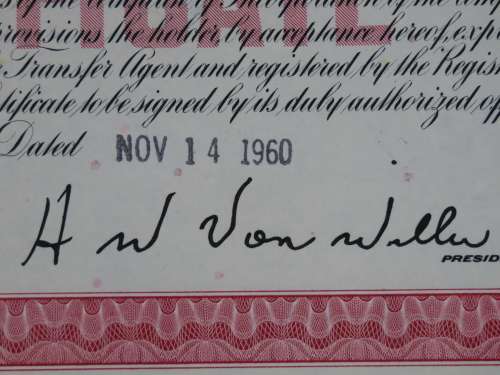 of the Company
provisions the holder, by acceptance hereof, exp
Transfer Agent and registered by the Regis
tificate, to be signed by its duly authorized, of
Dated NOV 14 1960
H W Von Willer
PRESID